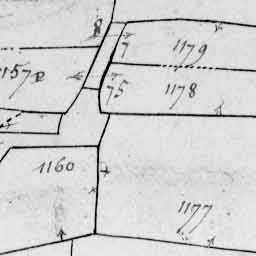 8
7
1179
157
75
1178
1160
1177